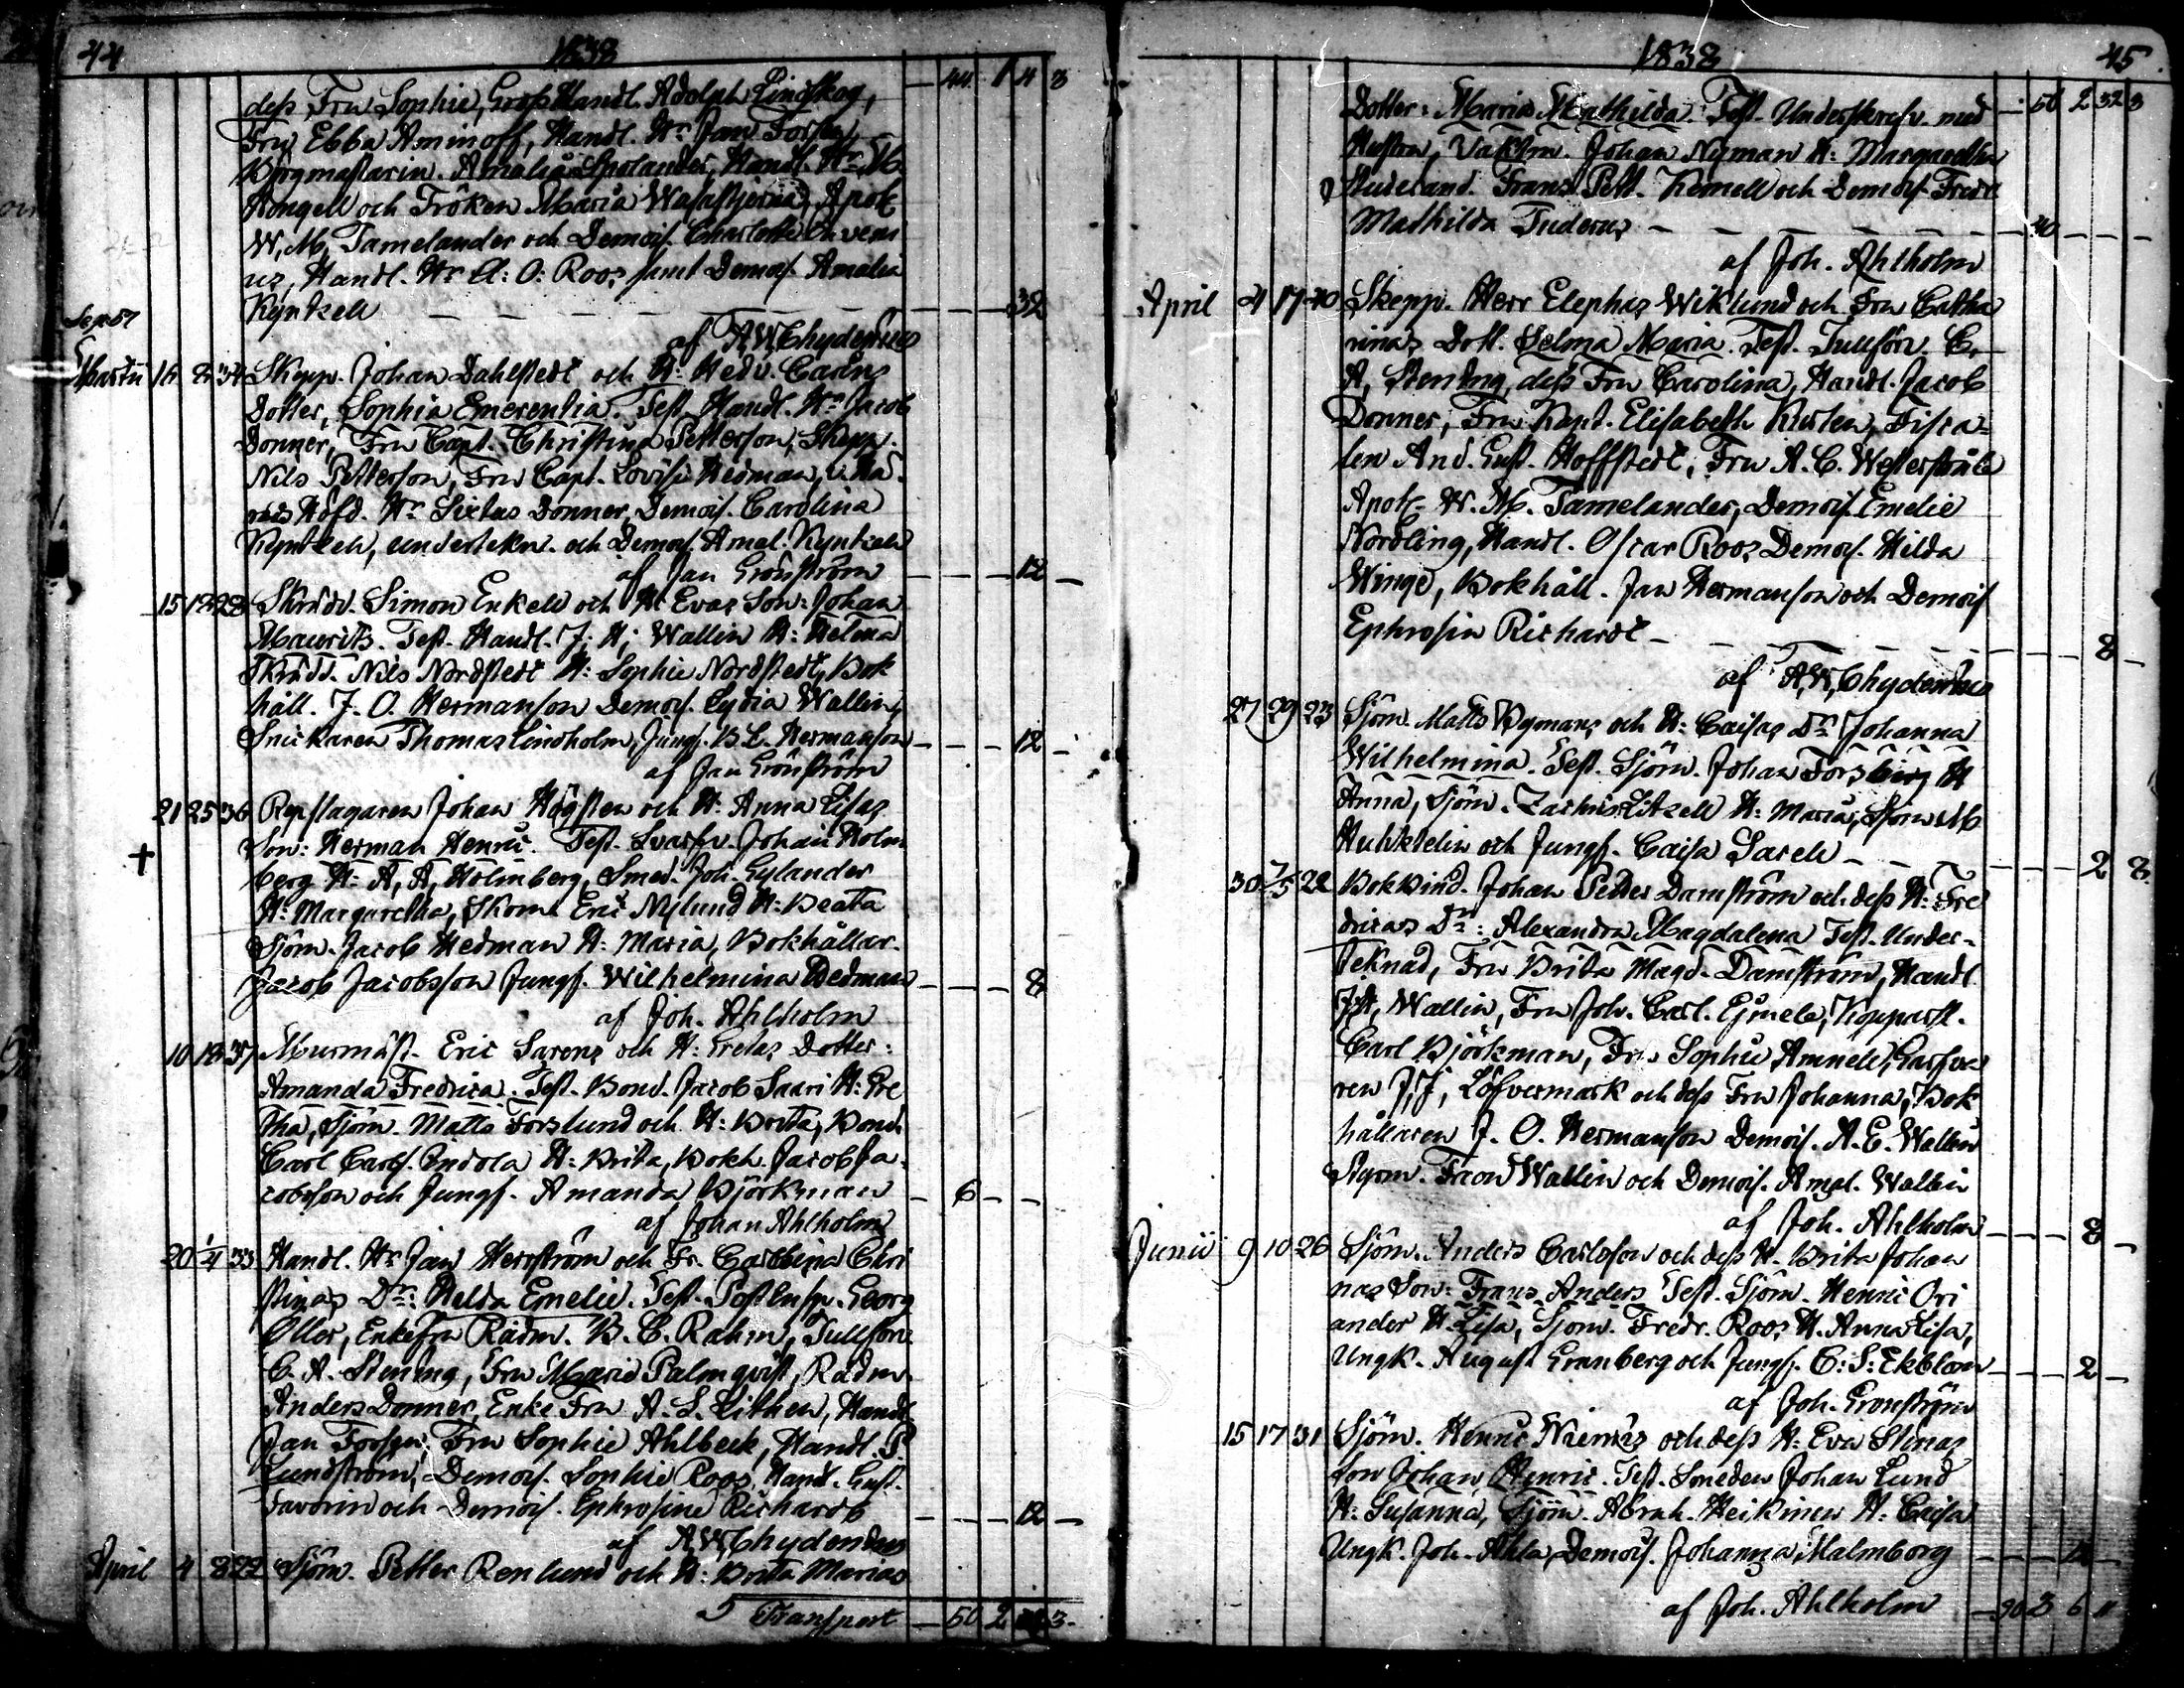 44 1838
dess Fru Sophie, Gross Handl. Adolph Lindskog, — 44 1 4 3
Fru Ebba Aminoff, Handl. Hr Jan Forsén,
Borgmästarin. Amalia Handl. Hr M.
och Fröken Maria Wasastjerna, Apot.
W. M. Tamelander och Demois. Charlotte
us, Handl. Hr A: O: Roos samt Demois. Amalia
Kyntzell — — — 32
af A W Chydenius
Martii 16 2 34 Skepp. Johan Dahlstedt och H: Hedv. Carins
Dotter, Sophia Emerentia. Test. Handl. Hr Jacob
Donner, Fru Capt. Christina Petterson, Skepp.
Nils Petterson, Fru Capt. Lovisa Hedman,
Höfd. Hr Sixtus Donner, Demois. Carolina
Kyntzell, undertekn. och Demois. Amal. Kyntzell
af Jan Grönström — — — 12 —
15 18 28 Skrädd. Simon Enkell och H: Evas Son: Johan
Maurits. Test. Handl. J. H. Wallin H: Helena
Skrädd. Nils Nordstedt H: Sophie Nordstedt, Bok
håll. J. O. Hermanson Demois. Lydia Wallin,
Snickaren Thomas Lindholm, Jungf. B L. Hermanson — — — 12 —
af Jan Grönström
21 25 36 Repslagaren Johan Högsten och H: Anna Lisas
+ Son: Herman Henric. Test. Svarfv. Johan Holm
berg H: A, A, Holmberg, Smed. Joh. Gylander
H: Margaretha, Skom. Eric Nylund H: Beata
Sjöm. Jacob Hedman H: Maria, Bokhållar.
Jacob Jacobsson Jungf. Wilhelmina Hedman — — — 8
af Joh. Ahlholm
10 18 37 Murmäst. Eric Sarens och H: Gretas Dotter:
Amanda Fredrica. Test. Bond. Jacob Saari H: Gre
tha, Sjöm. Matts Forslund och H: Brita, Bond.
Carl Carls. Indola H: Brita, Bokh. Jacob Ja
cobsson och Jungf. Amanda Björkman — 6 — —
af Johan Ahlholm
20 1/4 33 Handl. Hr Jan Herrström och Fr. Catharina Chri
stinas Dr: Hulda Emelie. Test. Post Insp. Georg
Öller, Enkefru Rådm. B. C. Rahm, Tullförv.
C. A. Stening, Fru Maria Palmqvist, Rådm.
Anders Donner, Enke Fru A. L. Lithen, Handl.
Jan Forsén, Fru Sophie Ahlbeck, Handl. P
Lundström, Demois. Sophie Roos, Handl. Gust.
Favorin och Demois. Ephrosine Richardt — — — 12 —
af A W Chydenius
April 4 8 22 Sjöm. Petter Renlund och H: Brita Marias
Transport — 50 2 32 3
1838 45
Dotter: Maria Mathilda. Test. Underskrefv. med — 50 2 32 3
Hustru, Vaktm. Johan Nyman H: Margaretha
Studerand. Frans Pett. Kemell och Demois. Fredr.
Mathilda Tuderus — — 40 — —
af Joh. Ahlholm
April 4 17 40 Skepp. Herr Elephas Wiklund och Fru Catha
rinas Dott. Selma Maria. Test. Tullförv. C.
A, Stening, dess Fru Carolina, Handl. Jacob
Donner, Fru Kapt. Elisabeth Kisten, Fisca-
len And. Gust. Hoffstedt, Fru A. C. Westerstråle
Apot. W. M. Tamelander, Demois. Emelie
Nordling, Handl. Oscar Roos, Demois. Hilda
Winge, Bokhåll. Jan Hermanson och Demois
Ephrosin Richardt — — — 8 —
af A W Chydenius
27 29 23 Sjöm. Matts Nymans och H: Caisas Dr Johanna
Wilhelmina. Test. Sjöm. Johan Forsberg H
Anna, Sjöm. Zachris Litzell H: Maria, Sjöm M
och Jungf. Caisa Sarell — — — 2 8
30 7/5 22 Bokbind. Johan Petter Damström och dess H: Fre
dricas Dr: Alexandra Magdalena Test. Under-
teknad, Fru Brita Magd. Damström, Handl.
J H, Wallin, Fru Joh. Carl. Kopparsl.
Carl Björkman, Fru Sophie Garfva
ren J, J, Löfvermark och dess Fru Johanna, Bok
hållaren J. O. Hermanson Demois. A. E. Wallin
Wallin och Demois. Amal. Wallin
af Joh. Ahlholm — — 8 —
Junii 9 10 26 Sjöm. Anders Carlsson och dess H. Brita Johan
nas Son: Frans Anders Test. Sjöm. Henric Ori
ander H. Lisa, Sjöm. Fredr. Roos H. Anna Lisa,
Ungk. August Granberg och Jungf. C: S: Ekblom — — 2 —
af Joh. Grönström
15 17 31 Sjöm. Henric Niemis och dess H: Eva Stinas
son Johan Henric. Test. Smeden Johan Lund
H: Susanna, Sjöm. Abrah. Heikinen H: Caisa
Ungk. Joh. Ahla, Demois. Johanna Malmborg — — —
af Joh. Ahlholm — 90 3 6 11